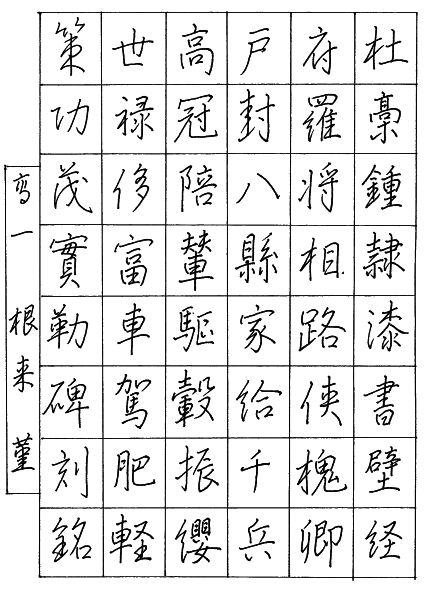 杜稾鍾隷漆書壁経
府羅将相路俠槐卿
戸封八縣家給千兵
高冠陪輦驅轂振纓
世禄侈富車駕肥軽
策功茂實勒碑刻銘
一 根来 菫